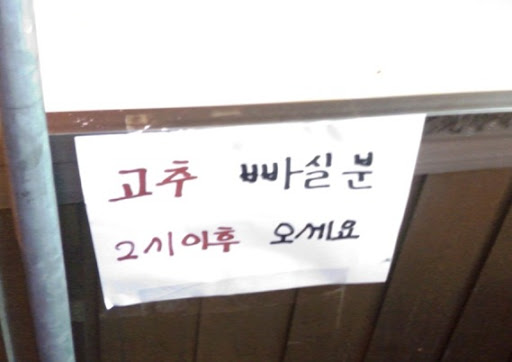 고추 빠실분
2시이후 오세요